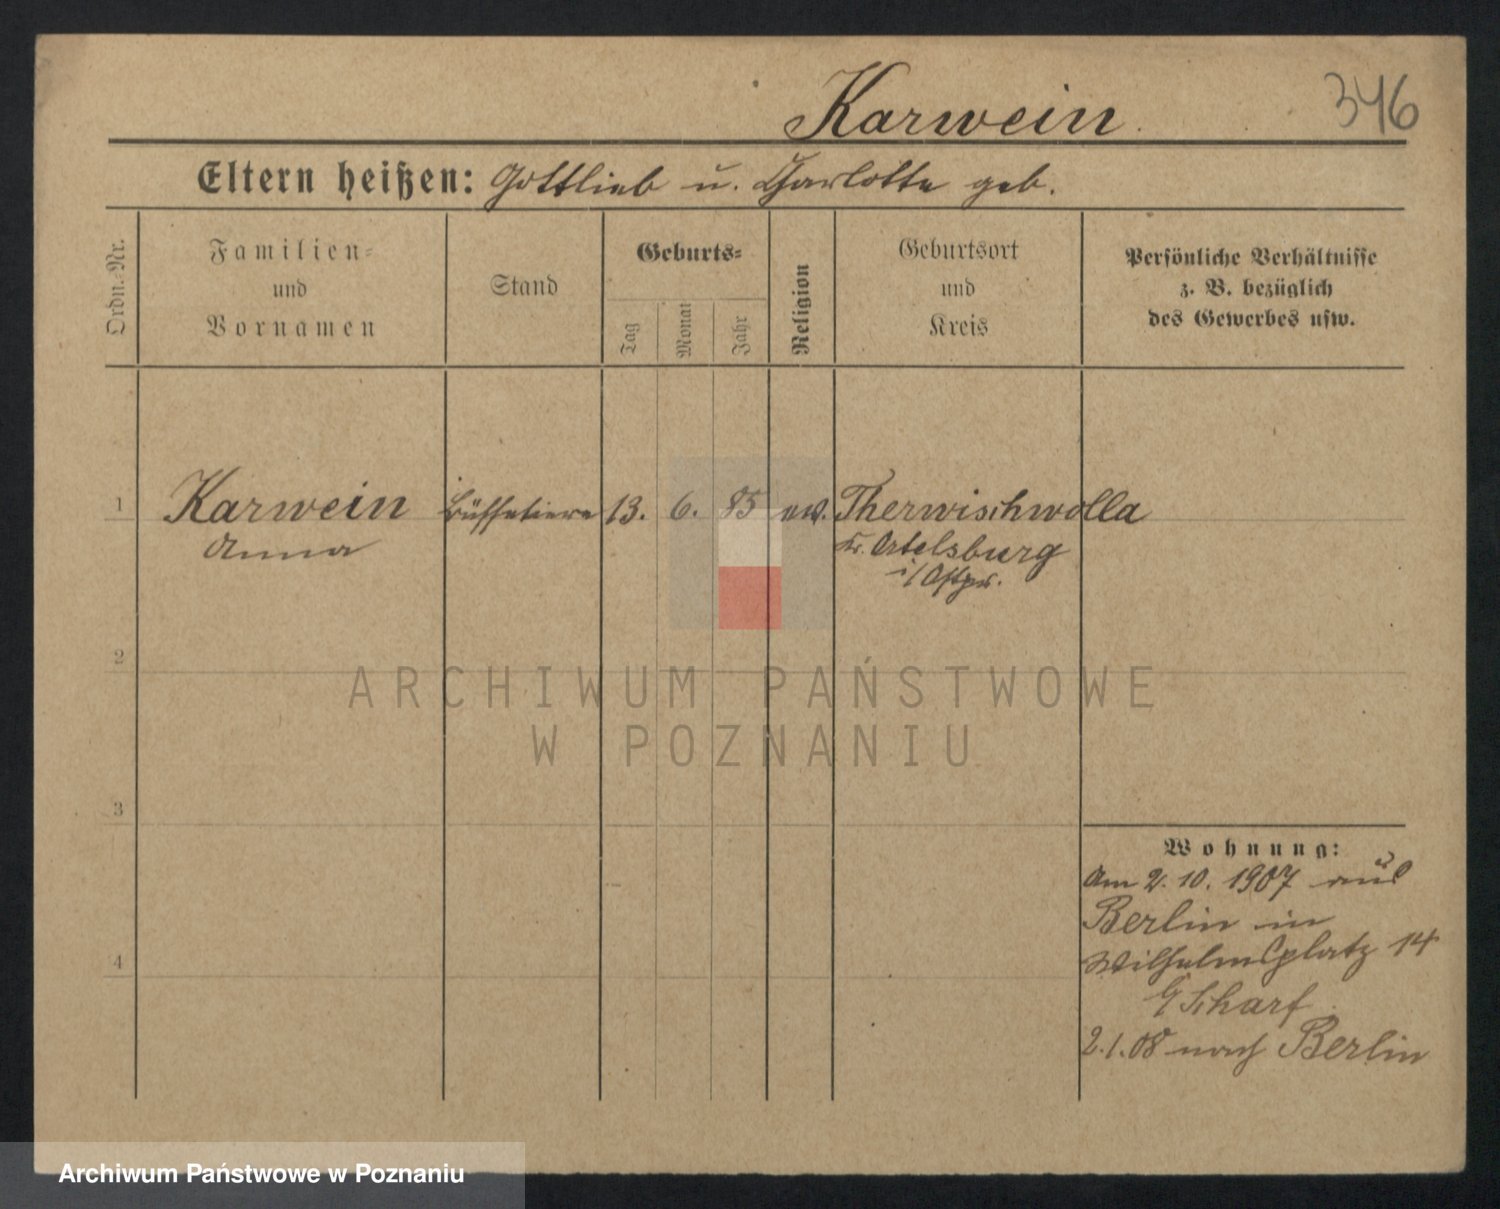 Karwein
346
Eltern heißen: Gottlieb u. Charlotte geb.
Ordn.-Nr.
Familien-
und
Vornamen
Stand
Geburts-
Tag
Monat
Jahr
Religion
Geburtsort
und
Kreis
Persönliche Verhältnisse
z. B. bezüglich
des Gewerbes usw.
1 Karwein Büffetiere 13. 6. 85 ev. Therwischwolla
Anna Kr. Ortelsburg
i/Ostpr.
2
ARCHIWUM PAŃSTWOWE
W POZNANIU
3
Wohnung:
Am 2. 10. 1907 aus
Berlin in
Wilhelmsplatz 14
4
b/ Scharf.
2.1.08 nach Berlin
Archiwum Państwowe w Poznaniu